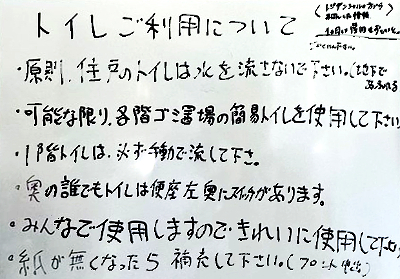 トイレご利用について
・原則、住戸のトイレは水を流さないで下さい。(地下で
・可能な限り、各階ゴミ置場の簡易トイレを使用して下さい
・1階トイレは、必ず手動で流して下さい。
・奥の誰でもトイレは便座左奥にスイッチがあります。
・みんなで使用しますのできれいに使用して下さい
・紙が無くなったら補充して下さい。(フロント